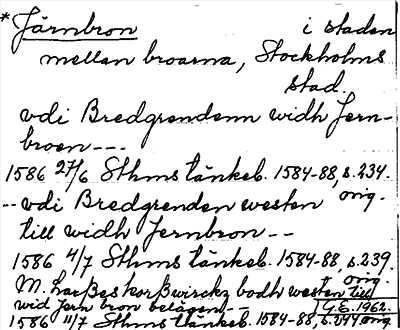 * Järnbron i staden
mellan broarna, Stockholms
stad.
vdi Bredgrendenn widh Jern-
broen ---
1586 27/6 Sthms tänkeb. 1584-88, s. 234.
orig.
-- vdi Bredgrenden westen
till widh Jernbron --
1586 4/7 Sthms tänkeb. 1584-88, s. 239.
orig.
M. Larßes korßwirckz bodh westen till
wid Jern bron belägen --
G.E. 1962.
1586 11/7 Sthms tänkeb. 1584-88, s. 244 orig.